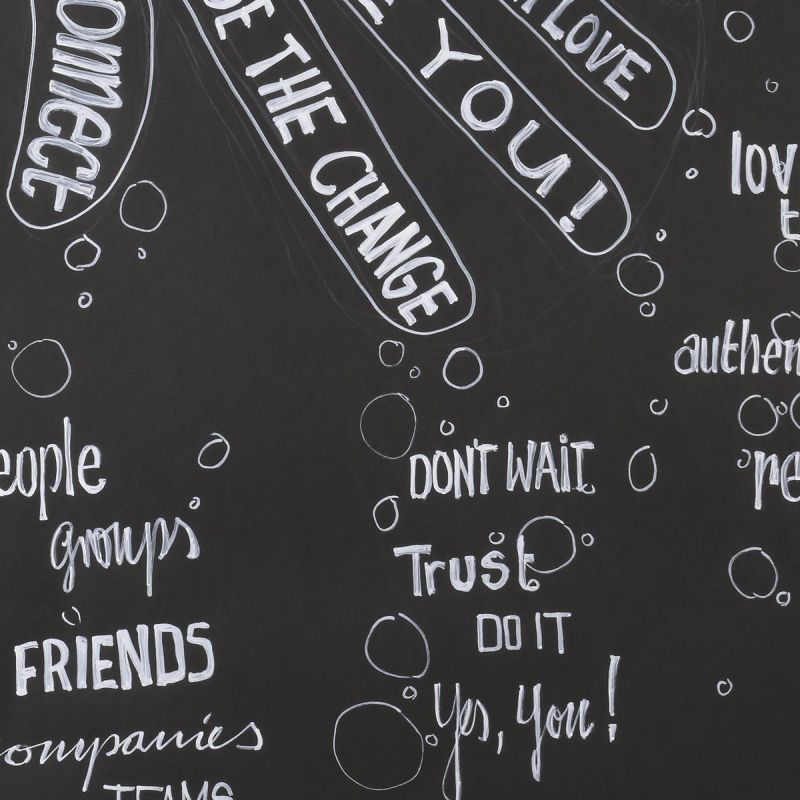 onnect
BE THE CHANGE
YOU!
LOVE
lov
t
authen
eople
groups
FRIENDS
ompanies
TEAMS
DON'T WAIT
Trust
DO IT
Yes, You!
re